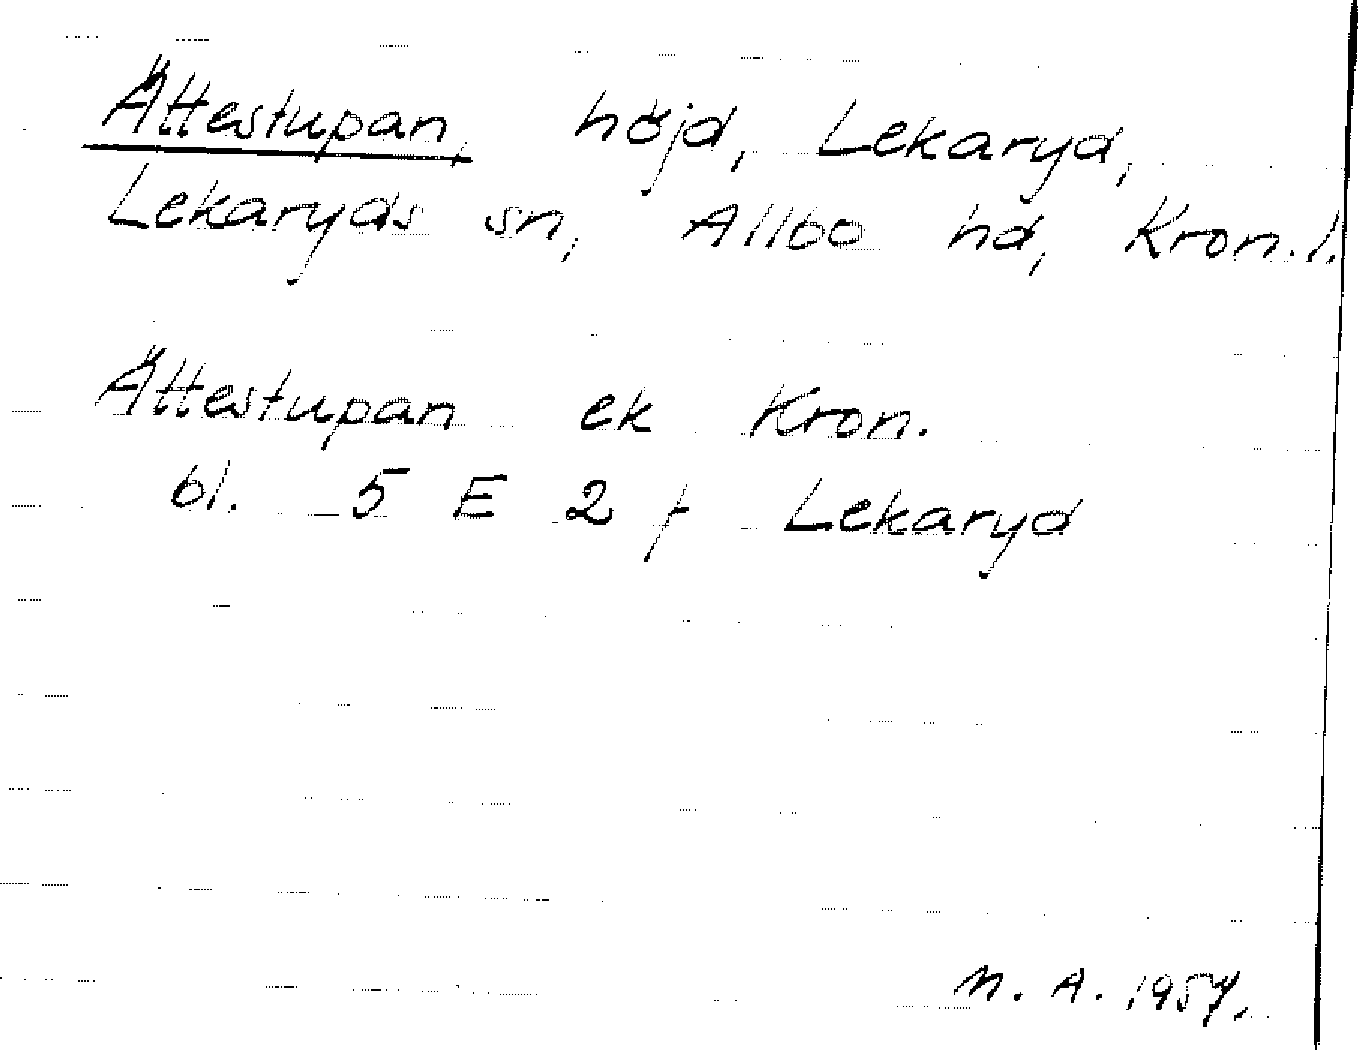 Ättestupan, höjd, Lekaryd,
Lekaryds sn, Allbo hd, Kron.l.
Ättestupan ek Kron.
bl. 5 E 2 f Lekaryd
N. A. 1957.